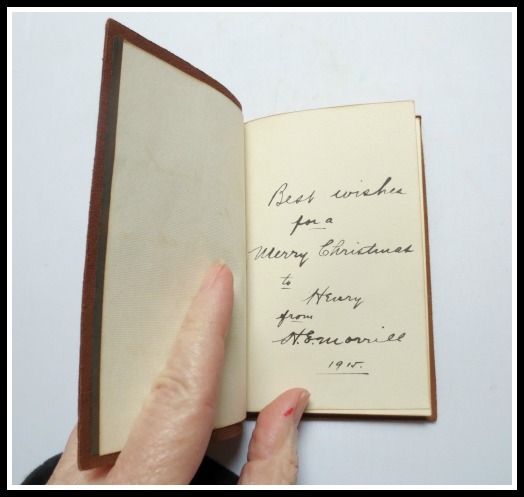 Best wishes
for a
Merry Christmas
to
Henry
from
H.E. Morrill
1915.